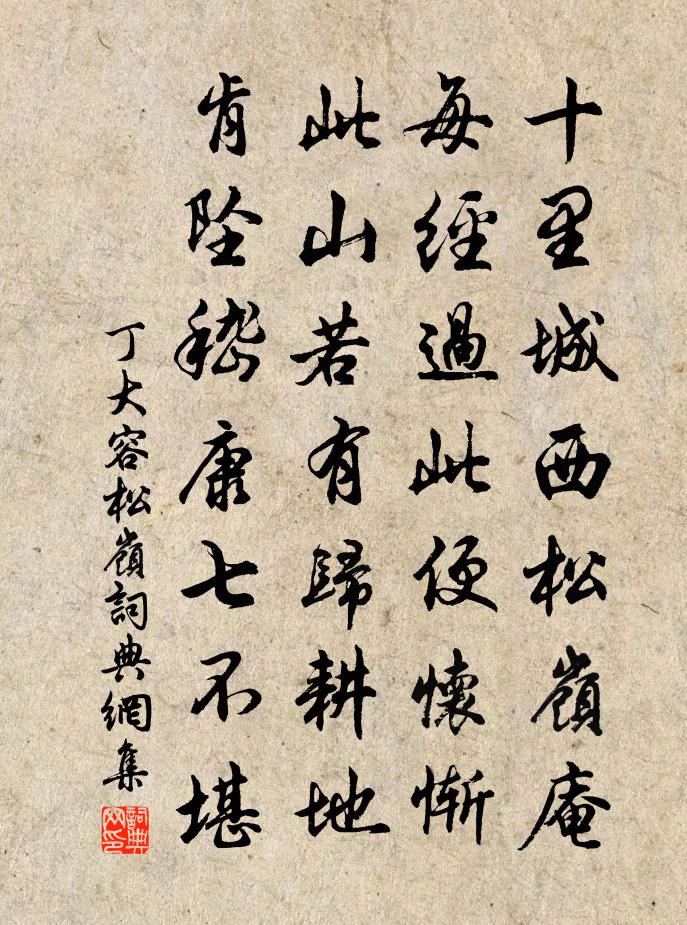 十里城西松嶺庵
每經過此便懷慚
此山若有歸耕地
肯墜嵇康七不堪
丁大容松嶺詞典網集
詞典网印